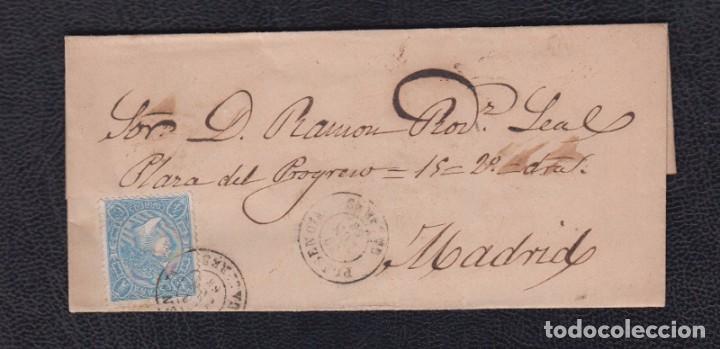 Sor. D. Ramon Rodz. Leal
Plaza del Progreso = 15 = 2º = dra.
Madrid
todocoleccion.net